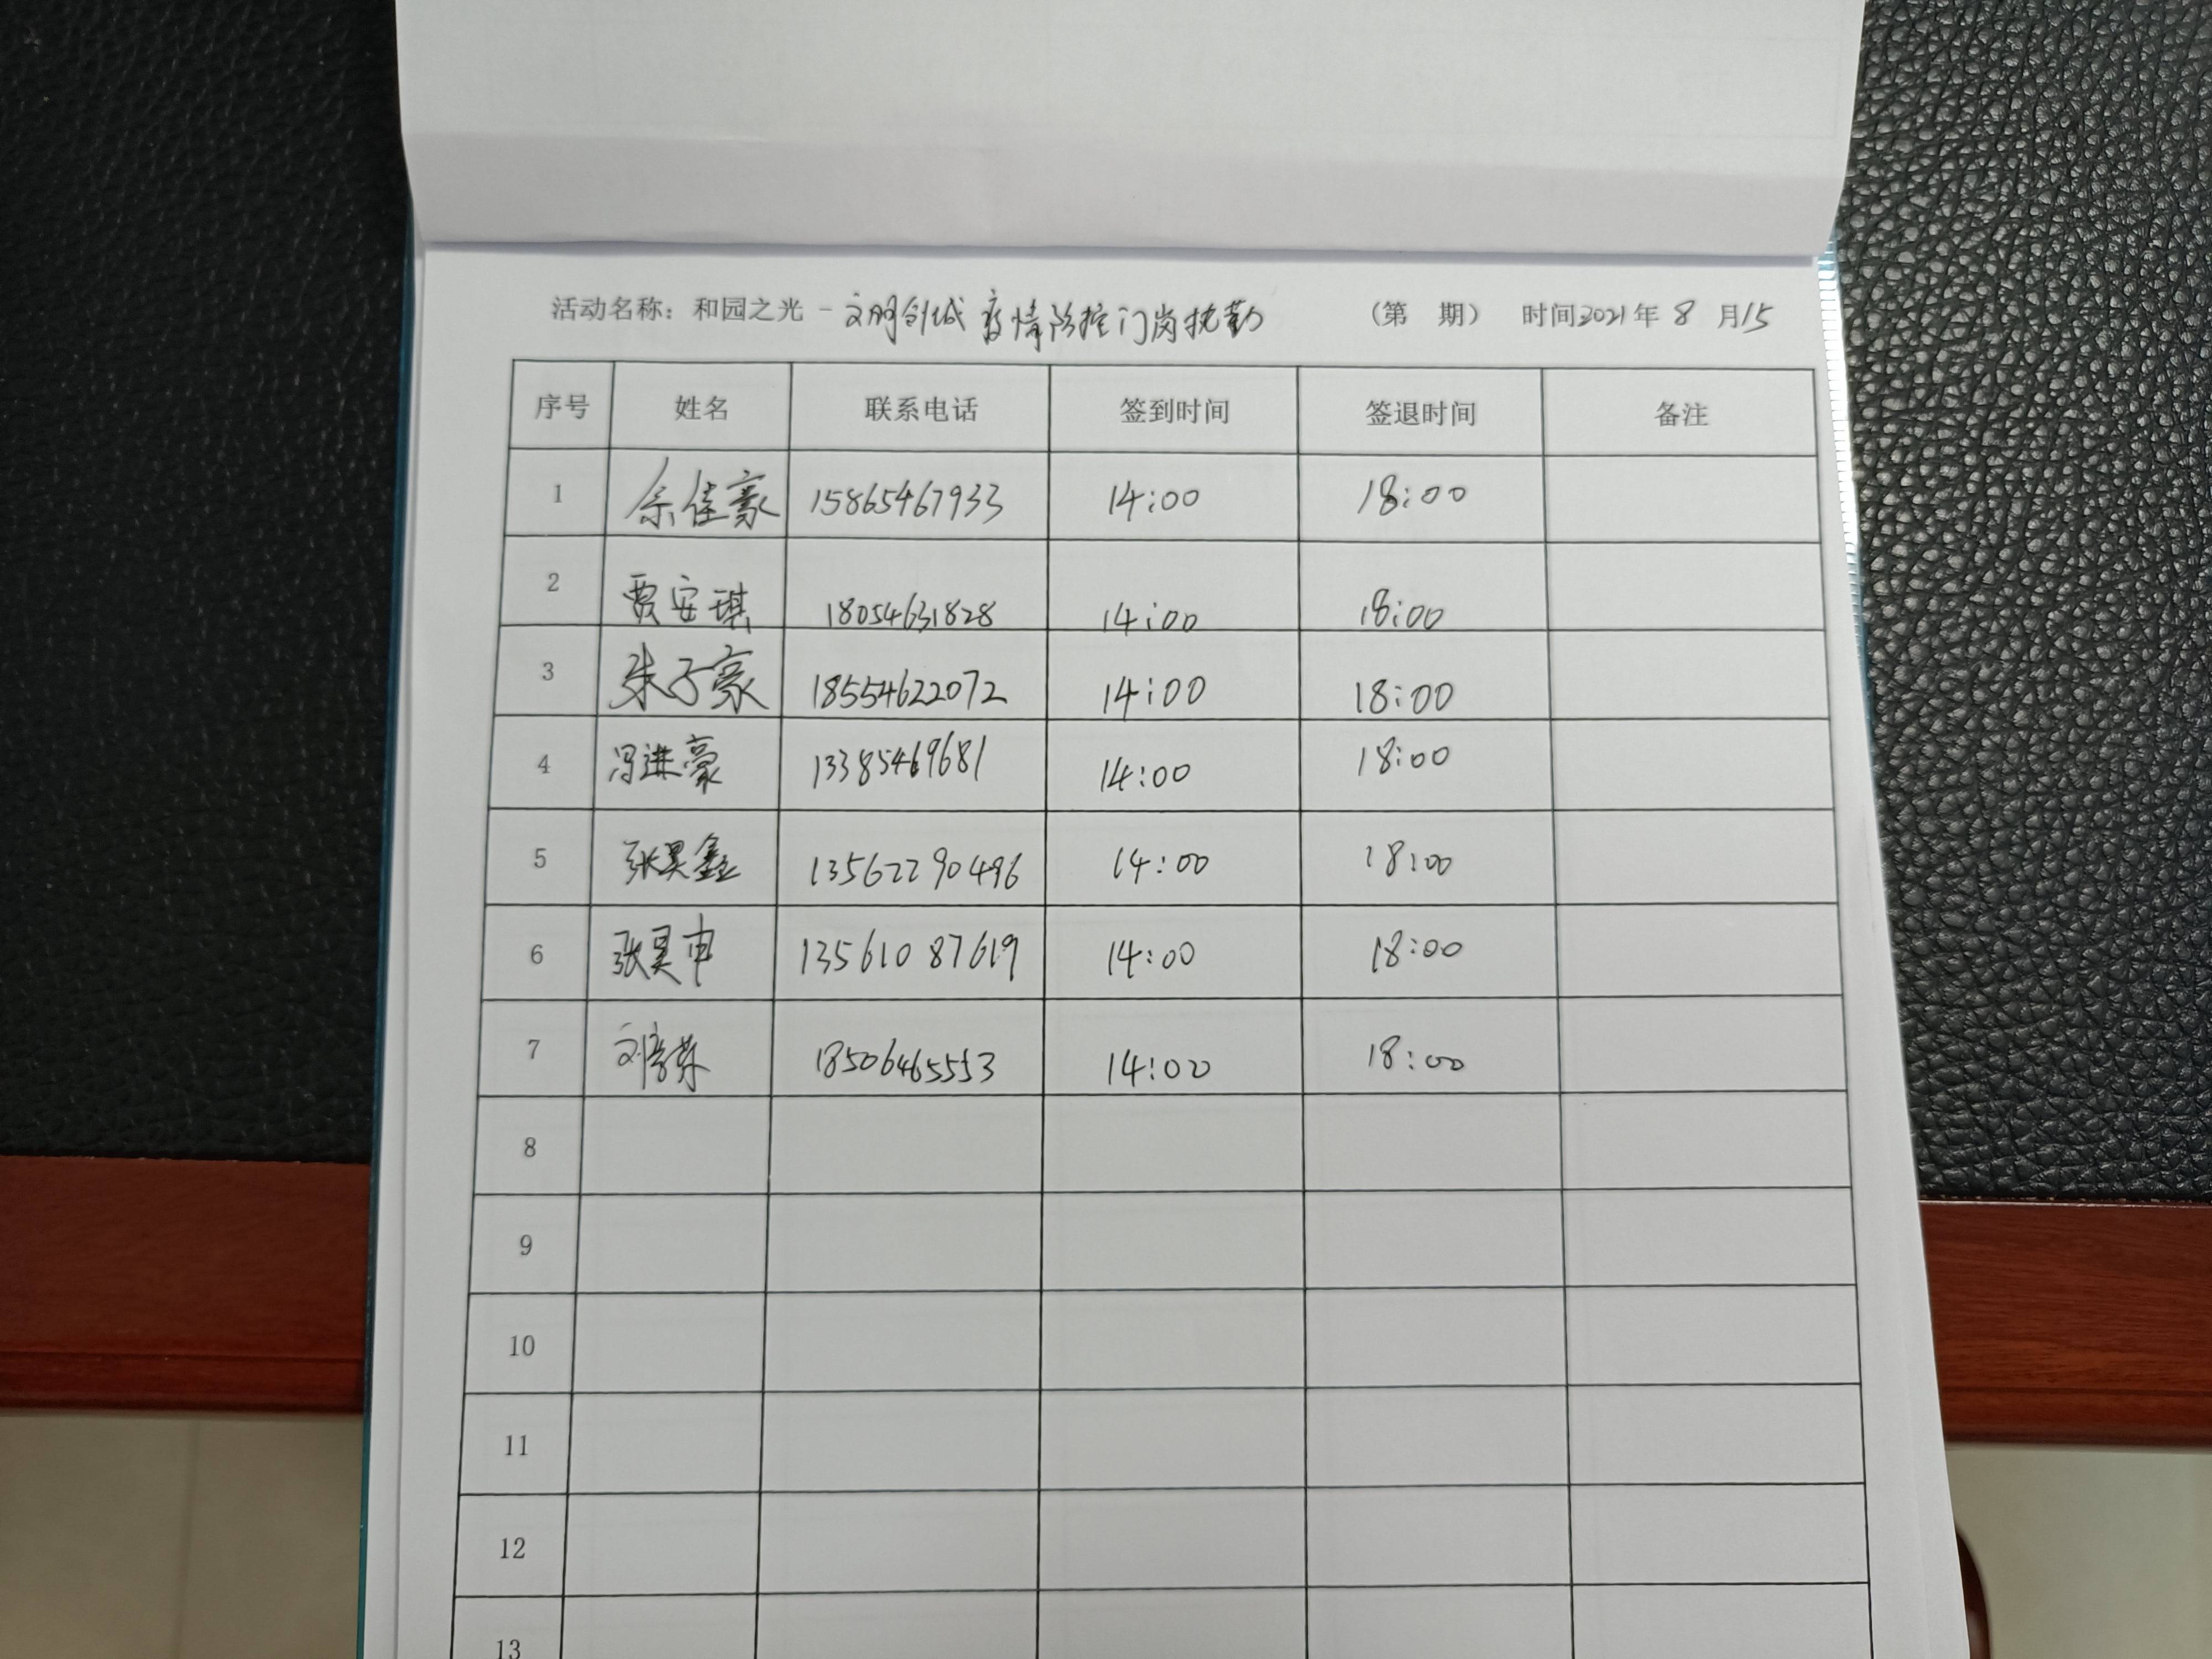 活动名称：和园之光 - 文明创城 疫情防控门岗执勤 （第 期） 时间2021年 8 月15
序号 姓名 联系电话 签到时间 签退时间 备注
1 余佳豪 15865467933 14:00 18:00
2 贾安琪 18054631828 14:00 18:00
3 朱子豪 18554622072 14:00 18:00
4 冯进豪 13385469681 14:00 18:00
5 张昊鑫 13562290496 14:00 18:00
6 张昊申 13561087619 14:00 18:00
7 18506465553 14:00 18:00
8
9
10
11
12
13